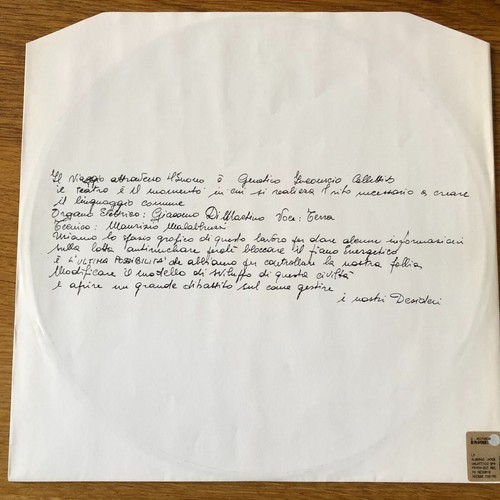 Il Viaggio attraverso il Suono è Genetico Inconscio Collettivo
il teatro è il momento in cui si realizza il rito necessario a creare
il linguaggio comune
Organo Elettrico: Giacomo Di Martino Voce: Terra
Tecnico: Maurizio Malabruzzi
Usiamo lo spazio grafico di questo lavoro per dare alcune informazioni
sulla lotta antinucleare perché bloccare il piano Energetico
è L'ULTIMA POSSIBILITÀ che abbiamo per controllare la nostra follia
Modificare il modello di sviluppo di questa civiltà
e aprire un grande dibattito sul come gestire
i nostri Desideri